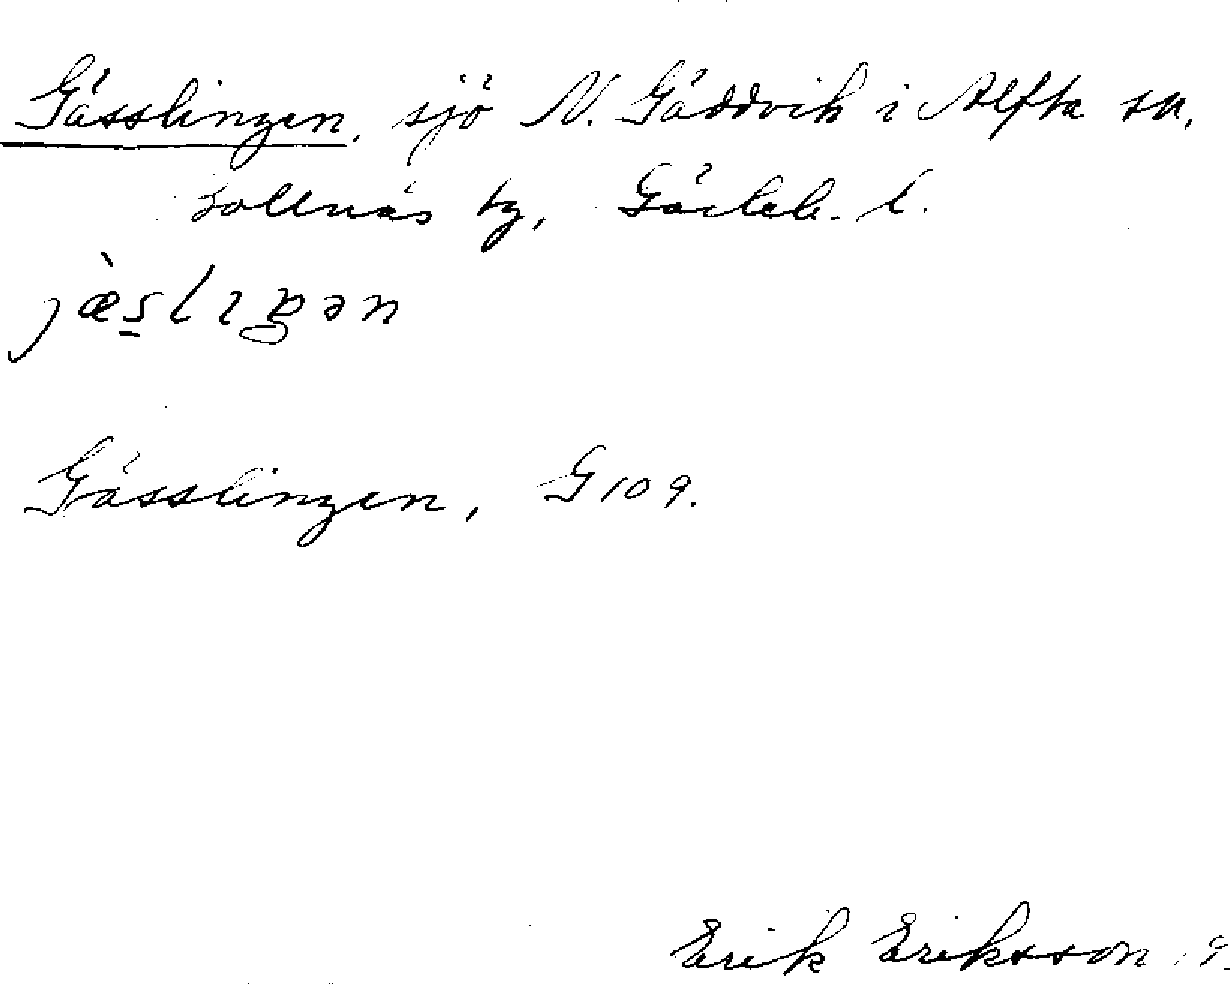 Gässlingen, sjö N. Gäddvik i Alfta sn,
Bollnäs tg, Gävleb. l.
Gässlingen, G 109.
Erik Eriksson